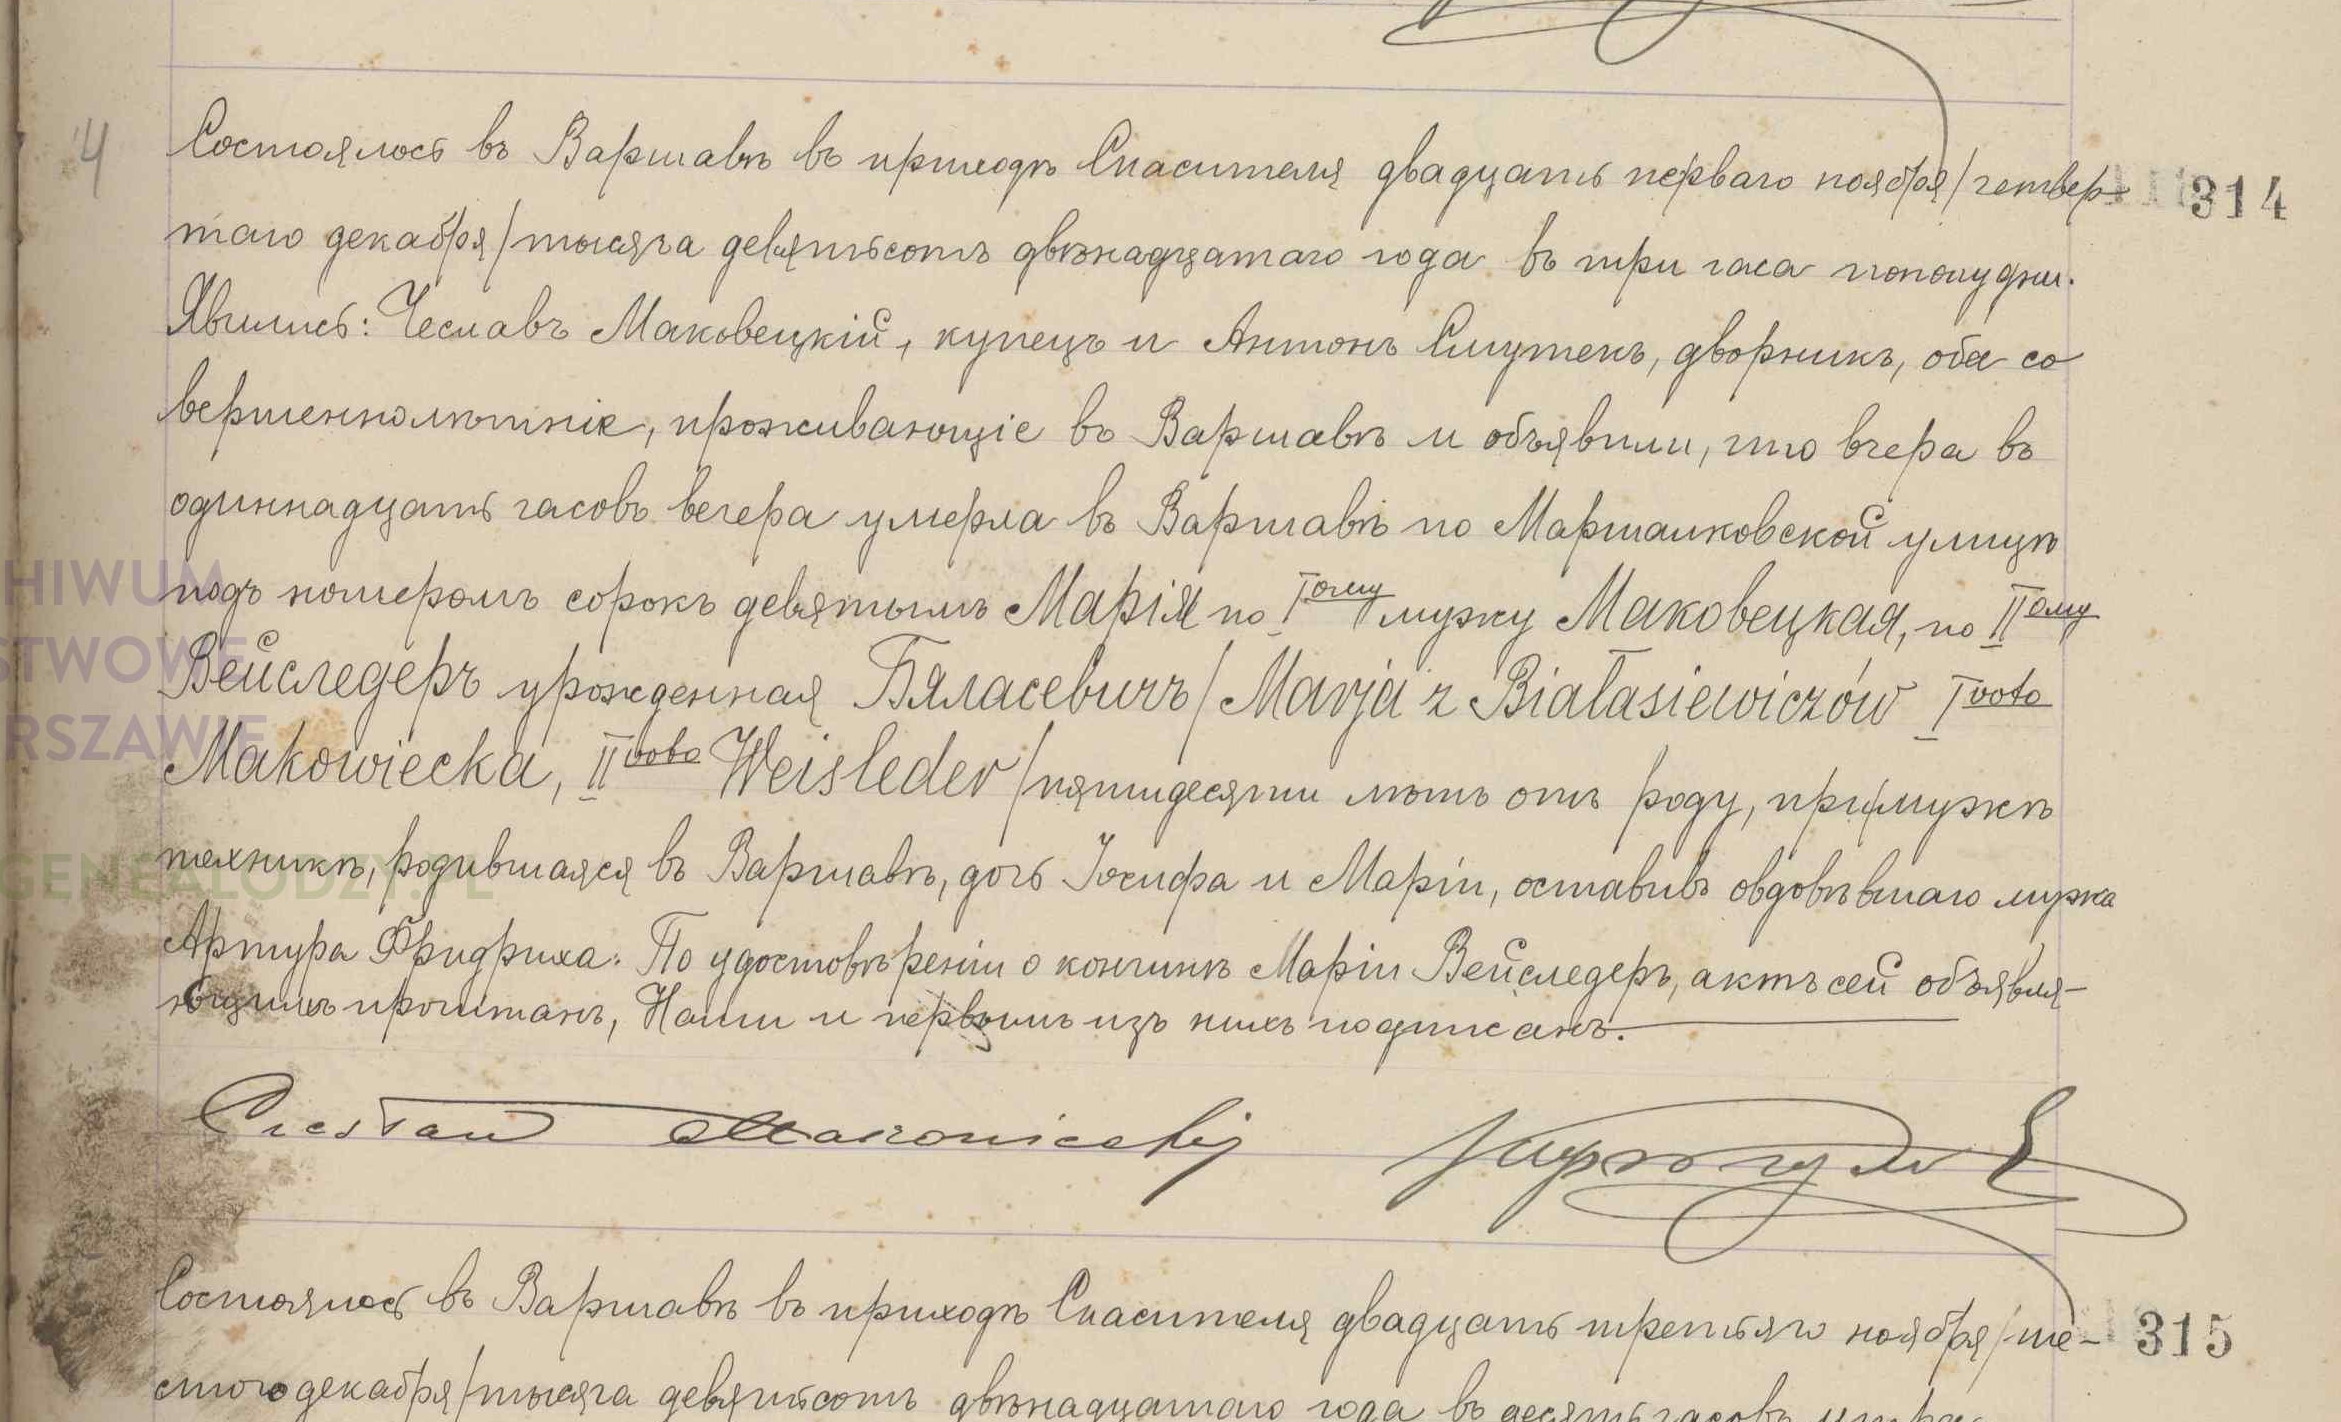 4
Состоялось въ Варшавѣ въ приходѣ Спасителя двадцать перваго ноября/четвер-
314
таго декабря/тысяча девятьсотъ двѣнадцатаго года въ три часа пополудни.
Явились: Чеславъ Маковецкій, купецъ и Антонъ Смутекъ, дворникъ, оба со
вершеннолѣтніе, проживающіе въ Варшавѣ и объявили, что вчера въ
одиннадцать часовъ вечера умерла въ Варшавѣ по Маршалковской улицѣ
подъ номеромъ сорокъ девятымъ Марія по Iому мужу Маковецкая, по IIому
Вейследеръ урожденная Бяласевичъ/Marja z Białasiewiczów I voto
Makowiecka, II voto Weisleder/пятидесяти лѣтъ отъ роду, при мужѣ
техникѣ, родившаяся въ Варшавѣ, дочь Іосифа и Маріи, оставивъ овдовѣвшаго мужа
Артура Фридриха. По удостовѣреніи о кончинѣ Маріи Вейследеръ, актъ сей объявля-
ющимъ прочитанъ, Нами и первымъ изъ нихъ подписанъ.
Czesław Makowiecki
Состоялось въ Варшавѣ въ приходѣ Спасителя двадцать третьяго ноября/ше-
315
стого декабря/тысяча девятьсотъ двѣнадцатаго года въ десять часовъ утра.
ARCHIWUM
PAŃSTWOWE
WARSZAWIE
GENEALODZY.PL